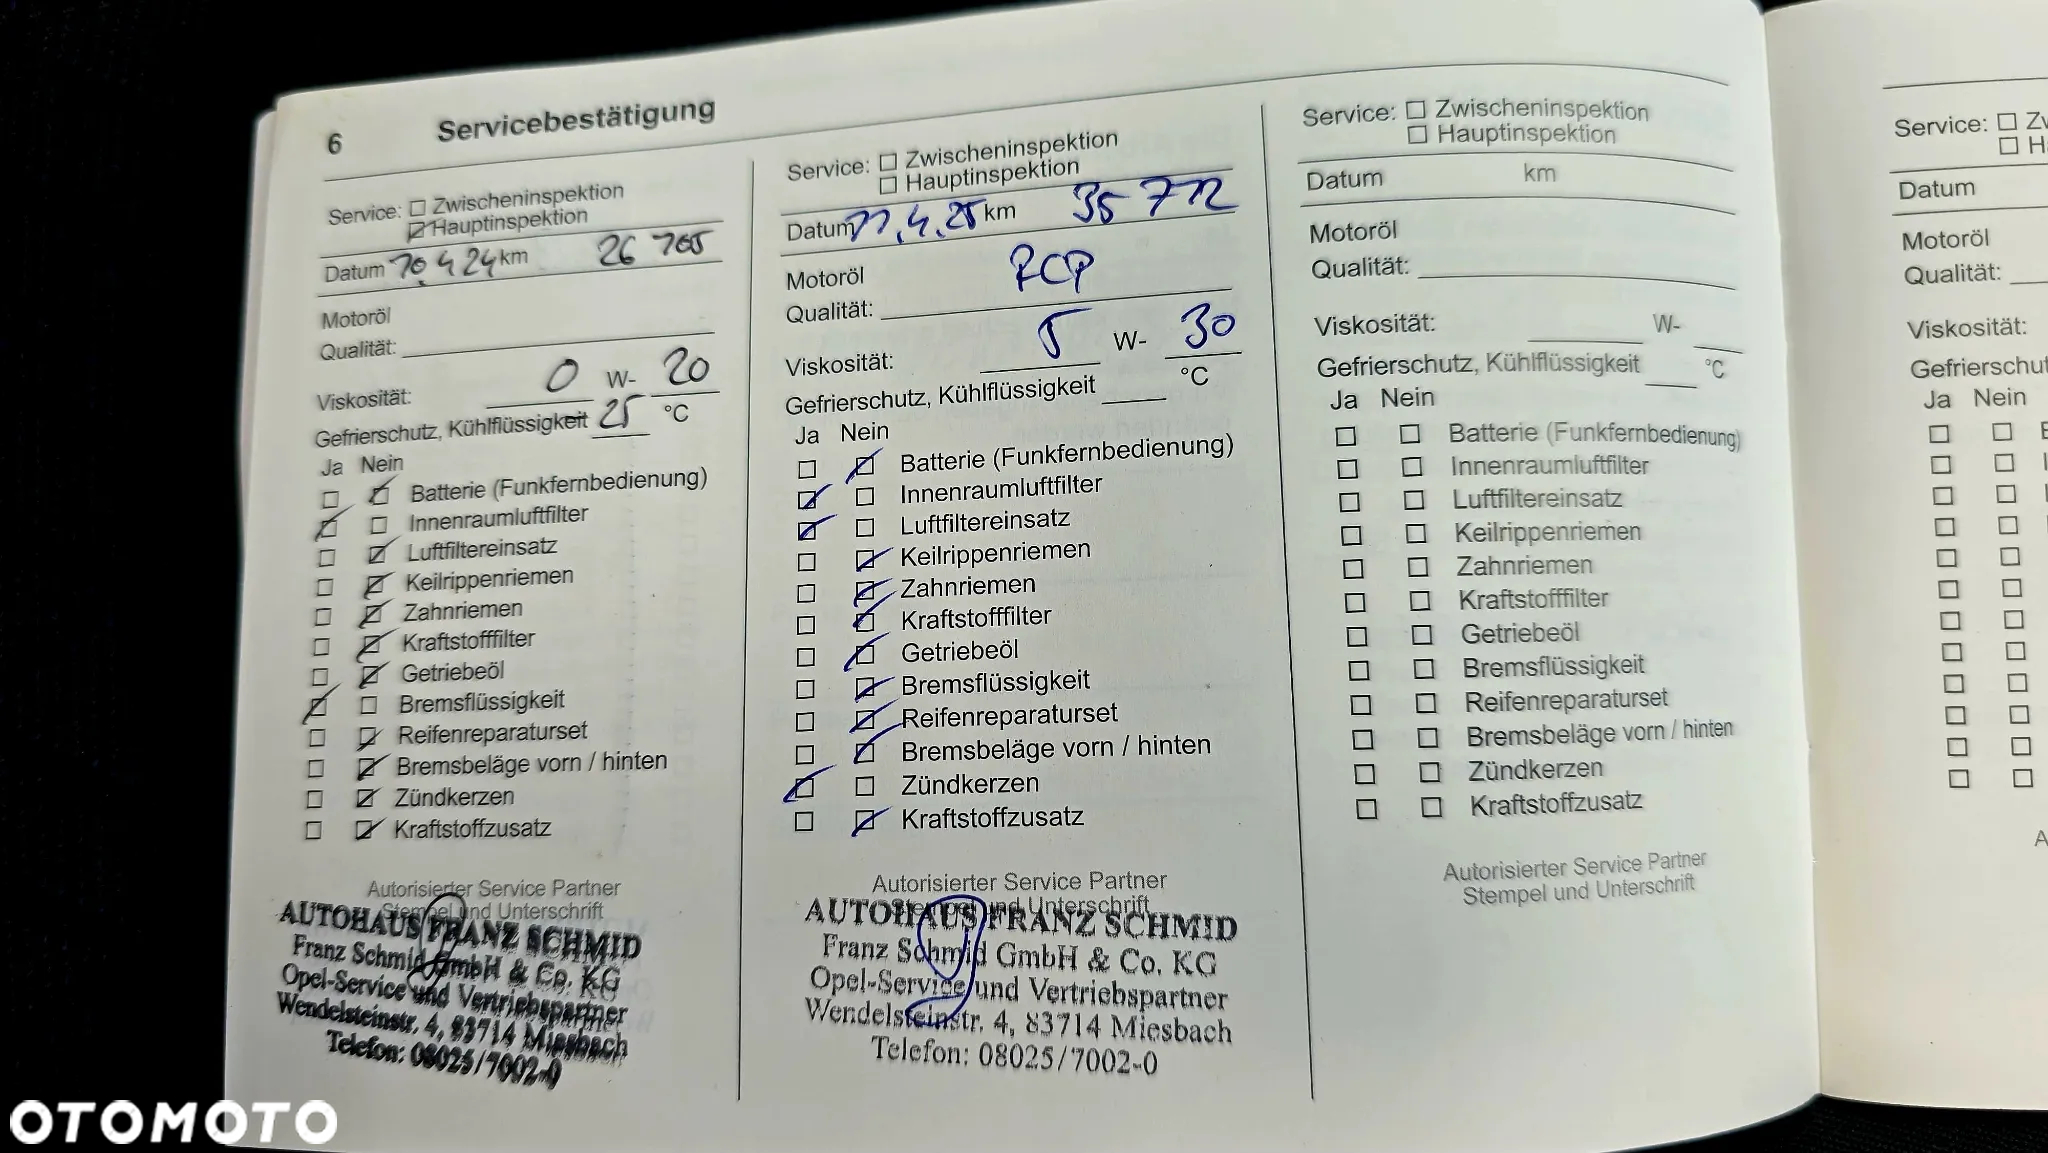 6 Servicebestätigung
Service: Zwischeninspektion
Hauptinspektion
Datum 10.4.24 km 26 705
Motoröl
Qualität:
Viskosität: 0 W- 20
Gefrierschutz, Kühlflüssigkeit 25 °C
Ja Nein
Batterie (Funkfernbedienung)
Innenraumluftfilter
Luftfiltereinsatz
Keilrippenriemen
Zahnriemen
Kraftstofffilter
Getriebeöl
Bremsflüssigkeit
Reifenreparaturset
Bremsbeläge vorn / hinten
Zündkerzen
Kraftstoffzusatz
Autorisierter Service Partner
Stempel und Unterschrift
AUTOHAUS FRANZ SCHMID
Franz Schmid GmbH & Co. KG
Opel-Service und Vertriebspartner
Wendelsteinstr. 4, 83714 Miesbach
Telefon: 08025/7002-0
Service: Zwischeninspektion
Hauptinspektion
Datum 11.4.25 km 35 712
Motoröl
Qualität:
Viskosität: 5 W- 30
Gefrierschutz, Kühlflüssigkeit °C
Ja Nein
Batterie (Funkfernbedienung)
Innenraumluftfilter
Luftfiltereinsatz
Keilrippenriemen
Zahnriemen
Kraftstofffilter
Getriebeöl
Bremsflüssigkeit
Reifenreparaturset
Bremsbeläge vorn / hinten
Zündkerzen
Kraftstoffzusatz
Autorisierter Service Partner
Stempel und Unterschrift
AUTOHAUS FRANZ SCHMID
Franz Schmid GmbH & Co. KG
Opel-Service und Vertriebspartner
Wendelsteinstr. 4, 83714 Miesbach
Telefon: 08025/7002-0
Service: Zwischeninspektion
Hauptinspektion
Datum km
Motoröl
Qualität:
Viskosität: W-
Gefrierschutz, Kühlflüssigkeit °C
Ja Nein
Batterie (Funkfernbedienung)
Innenraumluftfilter
Luftfiltereinsatz
Keilrippenriemen
Zahnriemen
Kraftstofffilter
Getriebeöl
Bremsflüssigkeit
Reifenreparaturset
Bremsbeläge vorn / hinten
Zündkerzen
Kraftstoffzusatz
Autorisierter Service Partner
Stempel und Unterschrift
Service:
Datum
Motoröl
Qualität:
Viskosität:
Ja Nein
OTOMOTO